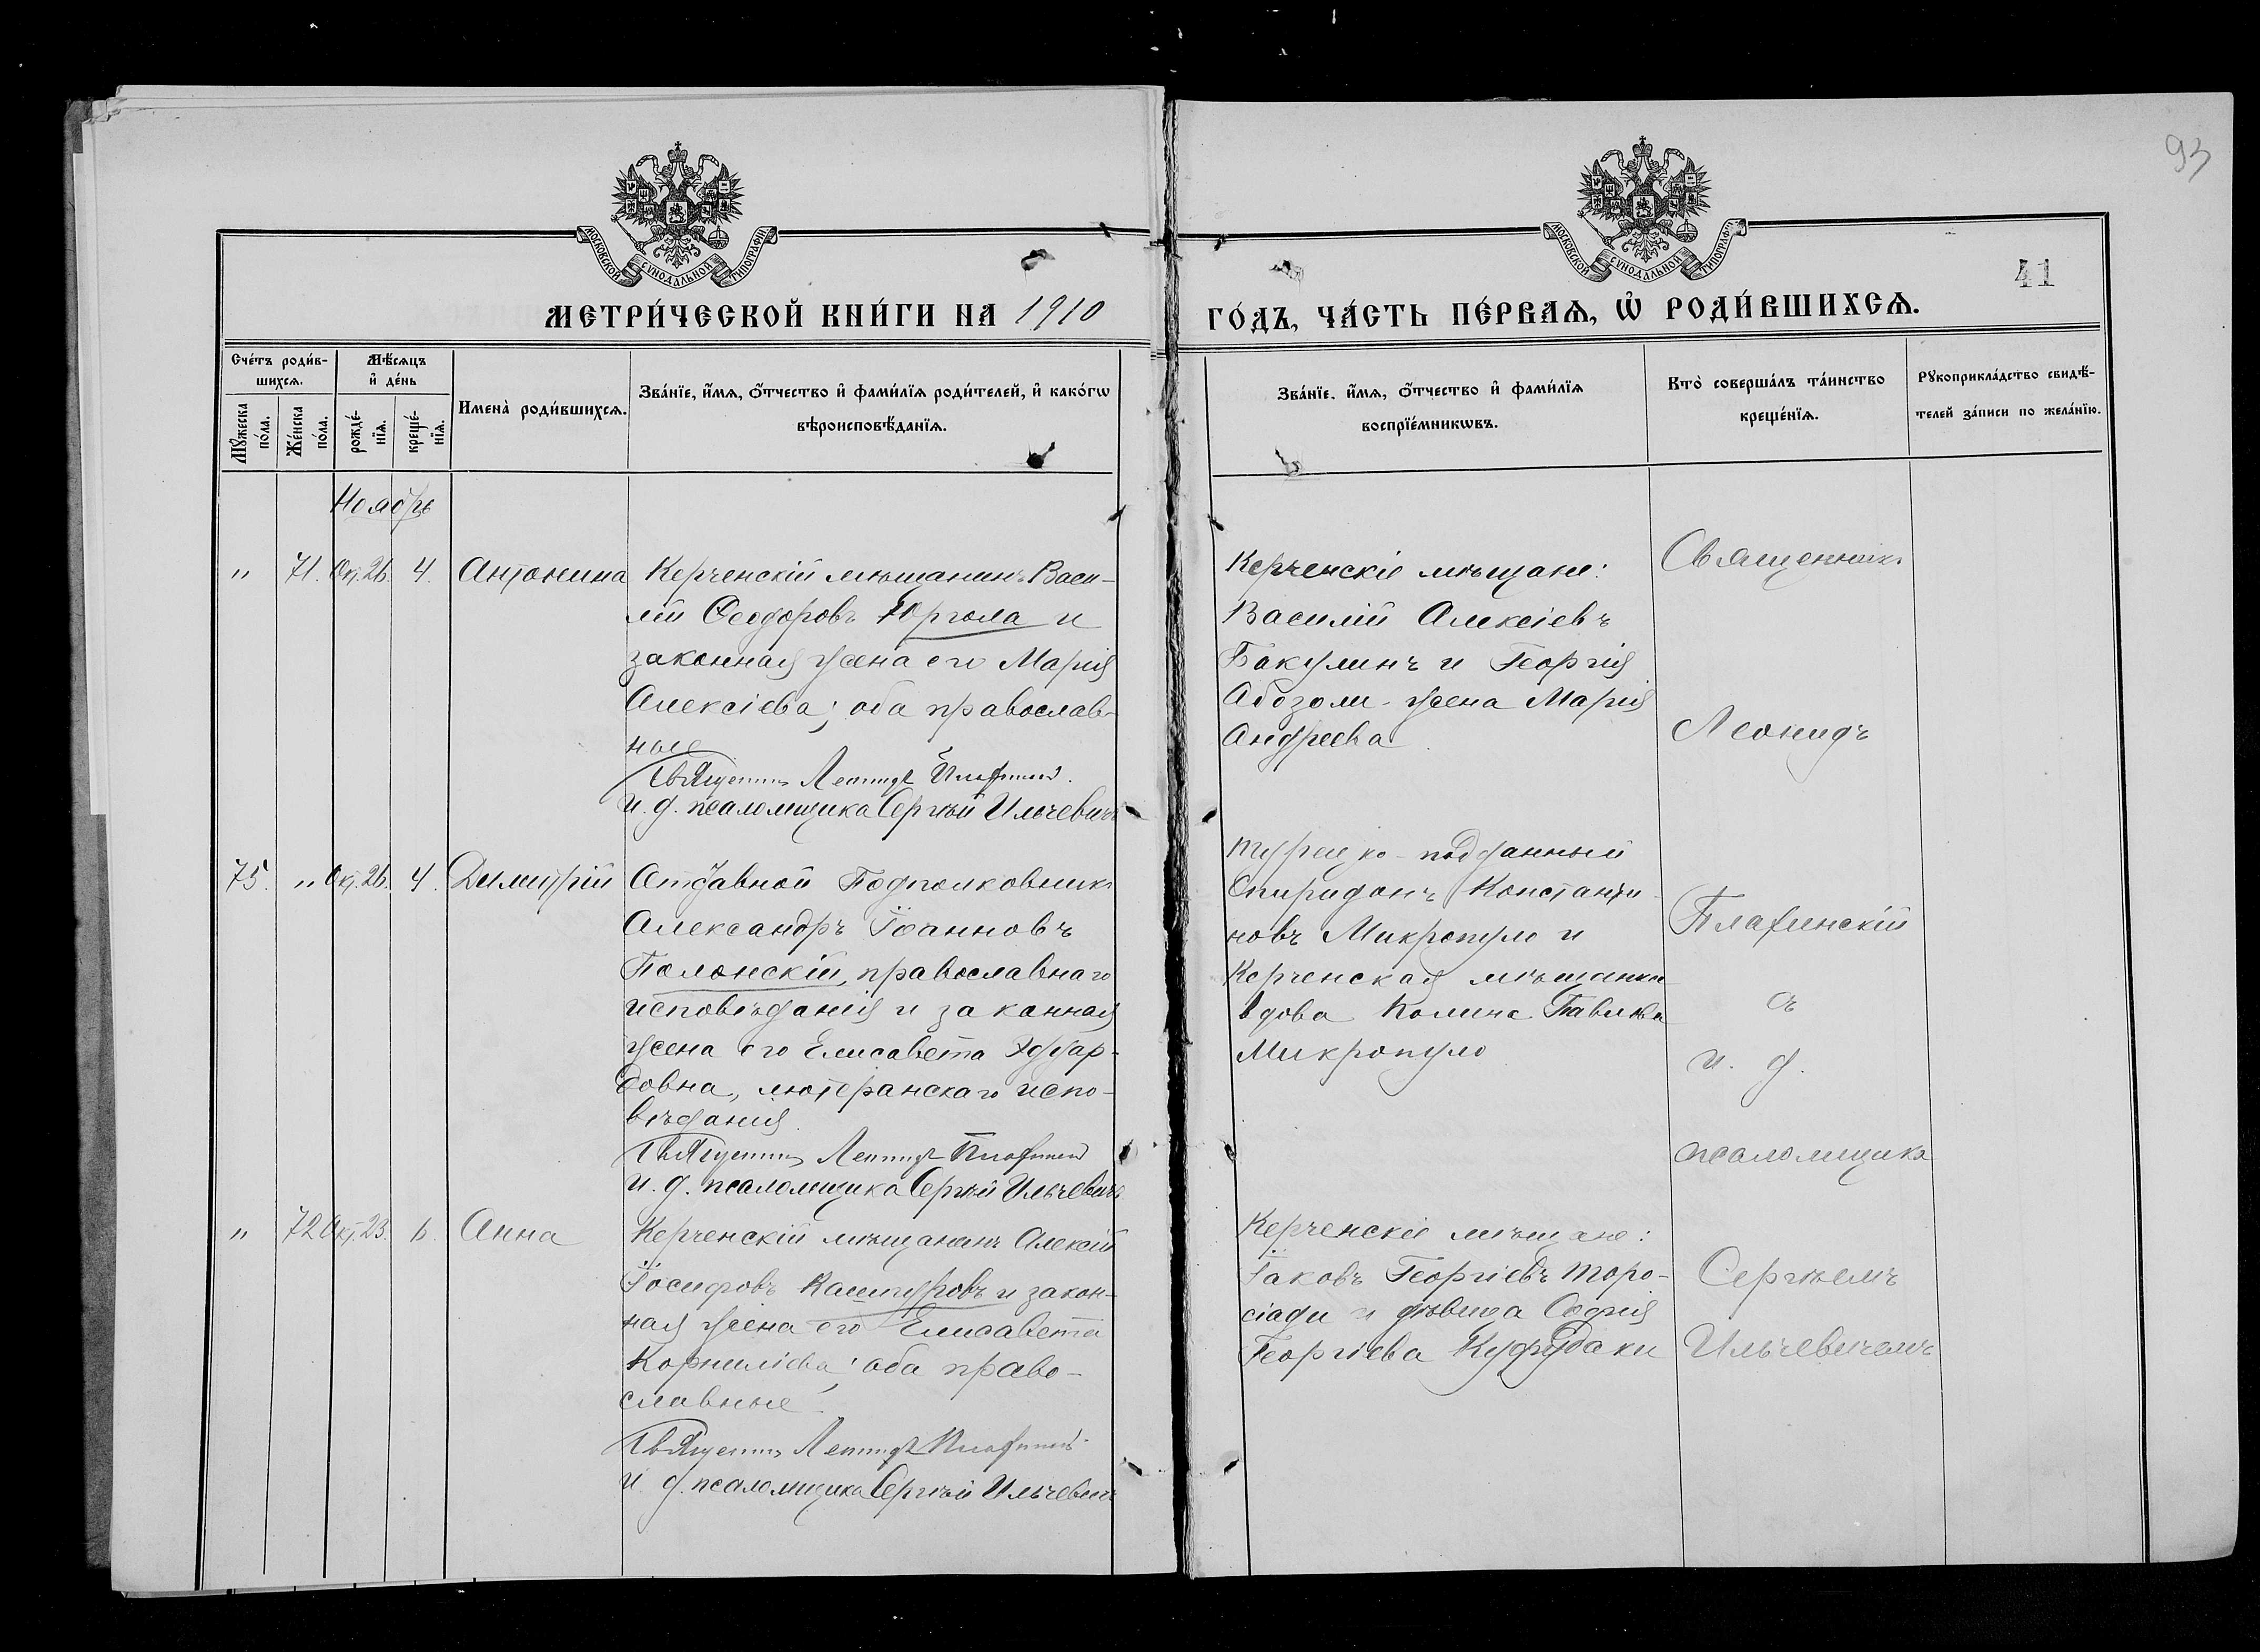 93
41
МОСКОВСКОЙ СѴНОДАЛЬНОЙ ТИПОГРАФІИ
МОСКОВСКОЙ СѴНОДАЛЬНОЙ ТИПОГРАФІИ
МЕТРИ́ЧЕСКОЙ КНИ́ГИ НА 1910
ГО́ДЪ, ЧА́СТЬ ПЕ́РВАѦ, Ѡ҆ РОДИ́ВШИХСѦ.
Сче́тъ роди́в-
шихсѧ.
Мꙋ́жеска по́ла.
Же́нска по́ла.
Мѣ́сѧцъ
и҆ де́нь
рожде́-
нїѧ.
креще́-
нїѧ.
Имена̀ роди́вшихсѧ.
Зва́нїе, и҆́мѧ, ѻ҆́тчество и҆ фами́лїѧ роди́телей, и҆ како́гѡ
вѣроисповѣ́данїѧ.
Зва́нїе, и҆́мѧ, ѻ҆́тчество и҆ фами́лїѧ
воспрїе́мникѡвъ.
Кто̀ соверша́лъ та́инство
креще́нїѧ.
Рꙋкоприкла́дство свидѣ́-
телей за́писи по жела́нїю.
Ноябрь
" 71. Окт. 26. 4. Антонина
Керченскій мѣщанинъ Васи-
лій Ѳеодоровъ Юргола и
законная жена его Марія
Алексіева; оба православ-
ные
Священникъ Леонидъ
и. д. псаломщика Сергѣй Ильчевичъ
Керченскіе мѣщане:
Василій Алексіевъ
Бакулинъ и Георгія
Абозоли - жена Марія
Андреева
75. " Окт. 26. 4. Димитрій
Отставной Подполковникъ
Александръ Іоанновъ
Полонскій, православнаго
исповѣданія и законная
жена его Елисавета Эдуар-
довна, лютеранскаго испо-
вѣданія.
Священникъ Леонидъ
и. д. псаломщика Сергѣй Ильчевичъ
Турецко-подданный
Спиридонъ Константи-
новъ Микропуло и
Керченская мѣщанка
вдова Павлова
Микропуло
" 72 Окт. 23. 6. Анна
Керченскій мѣщанинъ Алексій
Іосифовъ и закон-
ная жена его Елисавета
Корниліева; оба право-
славные.
Священникъ Леонидъ
и. д. псаломщика Сергѣй Ильчевичъ
Керченскіе мѣщане:
Іаковъ Георгіевъ Торо-
сіади и дѣвица Софія
Георгіева Куфудаки
Священникъ
Леонидъ
съ
и. д.
псаломщика
Сергѣемъ
Ильчевичемъ